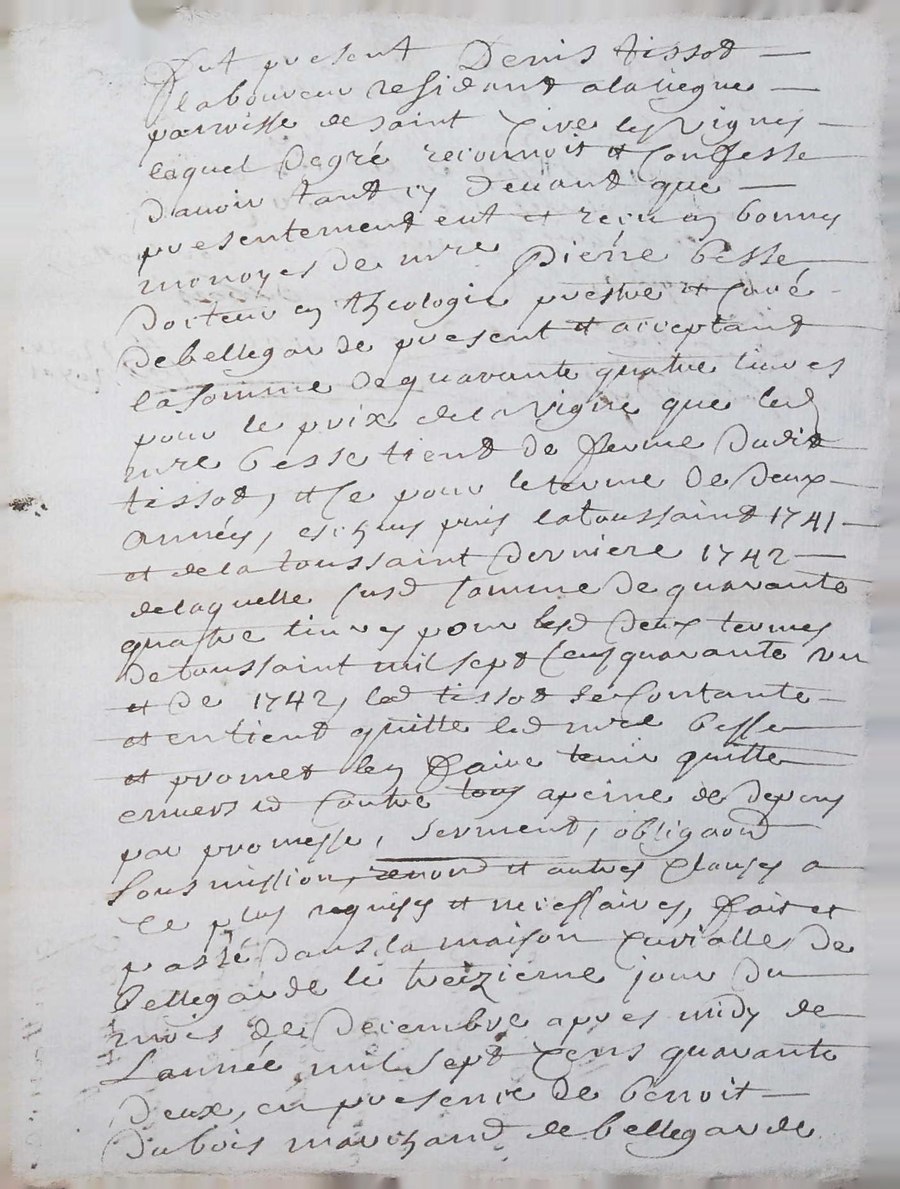 Fut present Denis tissot
laboureur residant a la viegue
parroisse de saint Cire les vignes
lequel de gré reconnoit et Confesse
d'avoir tant cy devant que
presentement eut et receu en bonnes
monoyes de mre Pierre besse
docteur en theologie prestre et Curé
de bellegarde present et acceptant
la somme de quarante quatre livres
pour le prix de la vigne que led
mre besse tient de ferme dudit
tissot, et Ce pour le terme de deux
années, eschus puis la toussaint 1741
et de la toussaint derniere 1742
de laquelle susd somme de quarante
quattre livres pour lesd deux termes
de toussaint mil sept Cens quarante un
et de 1742, led tissot se Contante
et en tient quitte led mre besse
et promet len faire tenir quitte
envers et Contre tous a peine de depens
par promesse, serment, obligaond
soumission, renond et autres Clauses a
Ce plus requises et necessaires, fait et
passé dans la maison Curialle de
bellegarde le treizieme jour du
mois de decembre apres midy de
Lannée mil sept Cens quarante
deux, en presence de benoit
dubois marchand de bellegarde